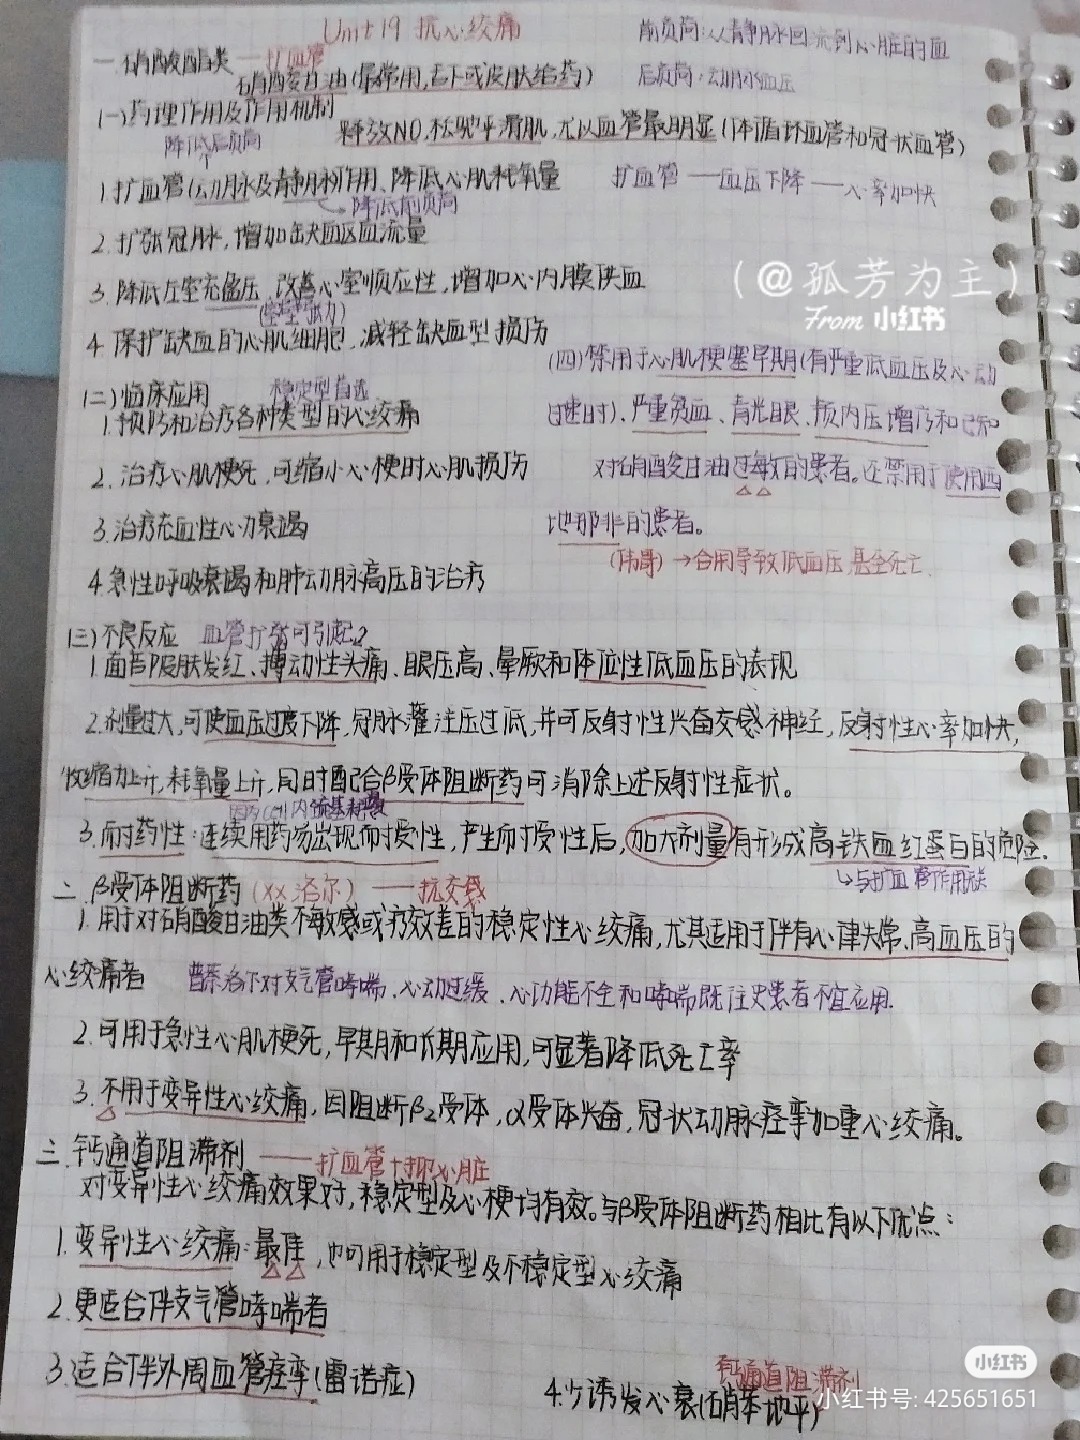 Unit 19 抗心绞痛
前负荷:从静脉回流到心脏的血
后负荷:动脉血压
一.硝酸酯类——扩血管
硝酸甘油(最常用,舌下或皮肤给药)
(一)药理作用及作用机制
释放NO,松驰平滑肌,尤以血管最明显(体循环血管和冠状血管)
降低后负荷
1.扩血管(动脉及静脉)作用、降低心肌耗氧量
扩血管——血压下降——心率加快
降低前负荷
2.扩张冠脉,增加缺血区血流量
3.降低左室充盈压,改善心室顺应性,增加心内膜供血
(@孤芳为主)
From 小红书
(室壁张力)
4.保护缺血的心肌细胞,减轻缺血型损伤
(四)禁用于心肌梗塞早期(有严重低血压及心动
过速时)、严重贫血、青光眼、颅内压增高和已知
对硝酸甘油过敏的患者。还禁用于使用西
地那非的患者。
(伟哥)→合用导致低血压,甚至死亡.
(二)临床应用 稳定型首选
1.预防和治疗各种类型的心绞痛
2.治疗心肌梗死,可缩小心梗时心肌损伤
3.治疗充血性心力衰竭
4.急性呼吸衰竭和肺动脉高压的治疗
(三)不良反应 血管扩张可引起
1.面部皮肤发红、搏动性头痛、眼压高、晕厥和体位性低血压的表现
2.剂量过大,可使血压过度下降,冠脉灌注压过低,并可反射性兴奋交感神经,反射性心率加快,
收缩力上升,耗氧量上升,同时配合β受体阻断药可消除上述反射性症状。
因为cell内巯基耗竭
3.耐药性:连续用药易出现耐受性,产生耐受性后,加大剂量有形成高铁血红蛋白的危险.
↳与扩血管作用无关
二.β受体阻断药(xx洛尔)——抗交感
1.用于对硝酸甘油类不敏感或疗效差的稳定性心绞痛,尤其适用于伴有心律失常、高血压的
心绞痛者 普萘洛尔对支气管哮喘、心动过缓、心功能不全和哮喘既往史患者不宜应用.
2.可用于急性心肌梗死,早期和长期应用,可显著降低死亡率
3.不用于变异性心绞痛,因阻断β2受体,α受体兴奋,冠状动脉痉挛加重心绞痛。
三.钙通道阻滞剂——扩血管+抑心脏
对变异性心绞痛效果对,稳定型及心梗均有效。与β受体阻断药相比有以下优点:
1.变异性心绞痛:最佳,也可用于稳定型及不稳定型心绞痛
2.更适合伴支气管哮喘者
3.适合伴外周血管痉挛(雷诺症)
钙通道阻滞剂
4.少诱发心衰(硝苯地平)
小红书
小红书号: 425651651